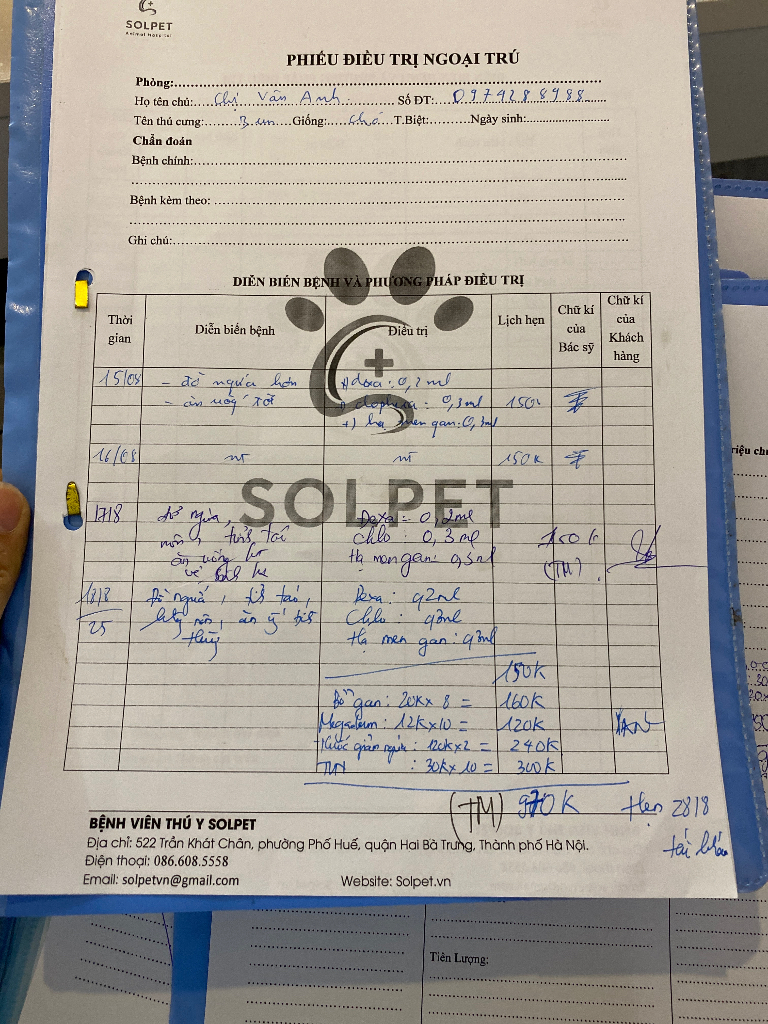 SOLPET
Animal Hospital
PHIẾU ĐIỀU TRỊ NGOẠI TRÚ
Phòng:
Họ tên chủ: Chị Vân Anh Số ĐT: 0974288988
Tên thú cưng: Bun Giống: chó T.Biệt: Ngày sinh:
Chẩn đoán
Bệnh chính:
Bệnh kèm theo:
Ghi chú:
DIỄN BIẾN BỆNH VÀ PHƯƠNG PHÁP ĐIỀU TRỊ
Thời gian Diễn biến bệnh Điều trị Lịch hẹn Chữ kí của Bác sỹ Chữ kí của Khách hàng
15/08 - đỡ ngứa hơn +) dexa: 0,2ml
- ăn uống tốt : 0,3ml 150k
+) hạ men gan: 0,3ml
16/08 nt nt 150k
SOLPET
17/8 đỡ ngứa, Dexa: 0,2ml
nôn, tỉnh táo Chlo: 0,3ml 150k
ăn uống Hạ men gan: 0,3ml (TM)
18/8 Đỡ ngứa, tỉnh táo, Dexa: 0,2ml
25 nôn, ăn Chlo: 0,3ml
Hạ men gan: 0,3ml
150K
Bổ gan: 20K x 8 = 160K
Megaderm: 12K x 10 = 120K
Nước giảm ngứa: 120K x 2 = 240K
: 30K x 10 = 300K
(TM) 970K Hẹn 28/8
tái khám
BỆNH VIÊN THÚ Y SOLPET
Địa chỉ: 522 Trần Khát Chân, phường Phố Huế, quận Hai Bà Trưng, Thành phố Hà Nội.
Điện thoại: 086.608.5558
Email: solpetvn@gmail.com Website: Solpet.vn
Tiên Lượng: